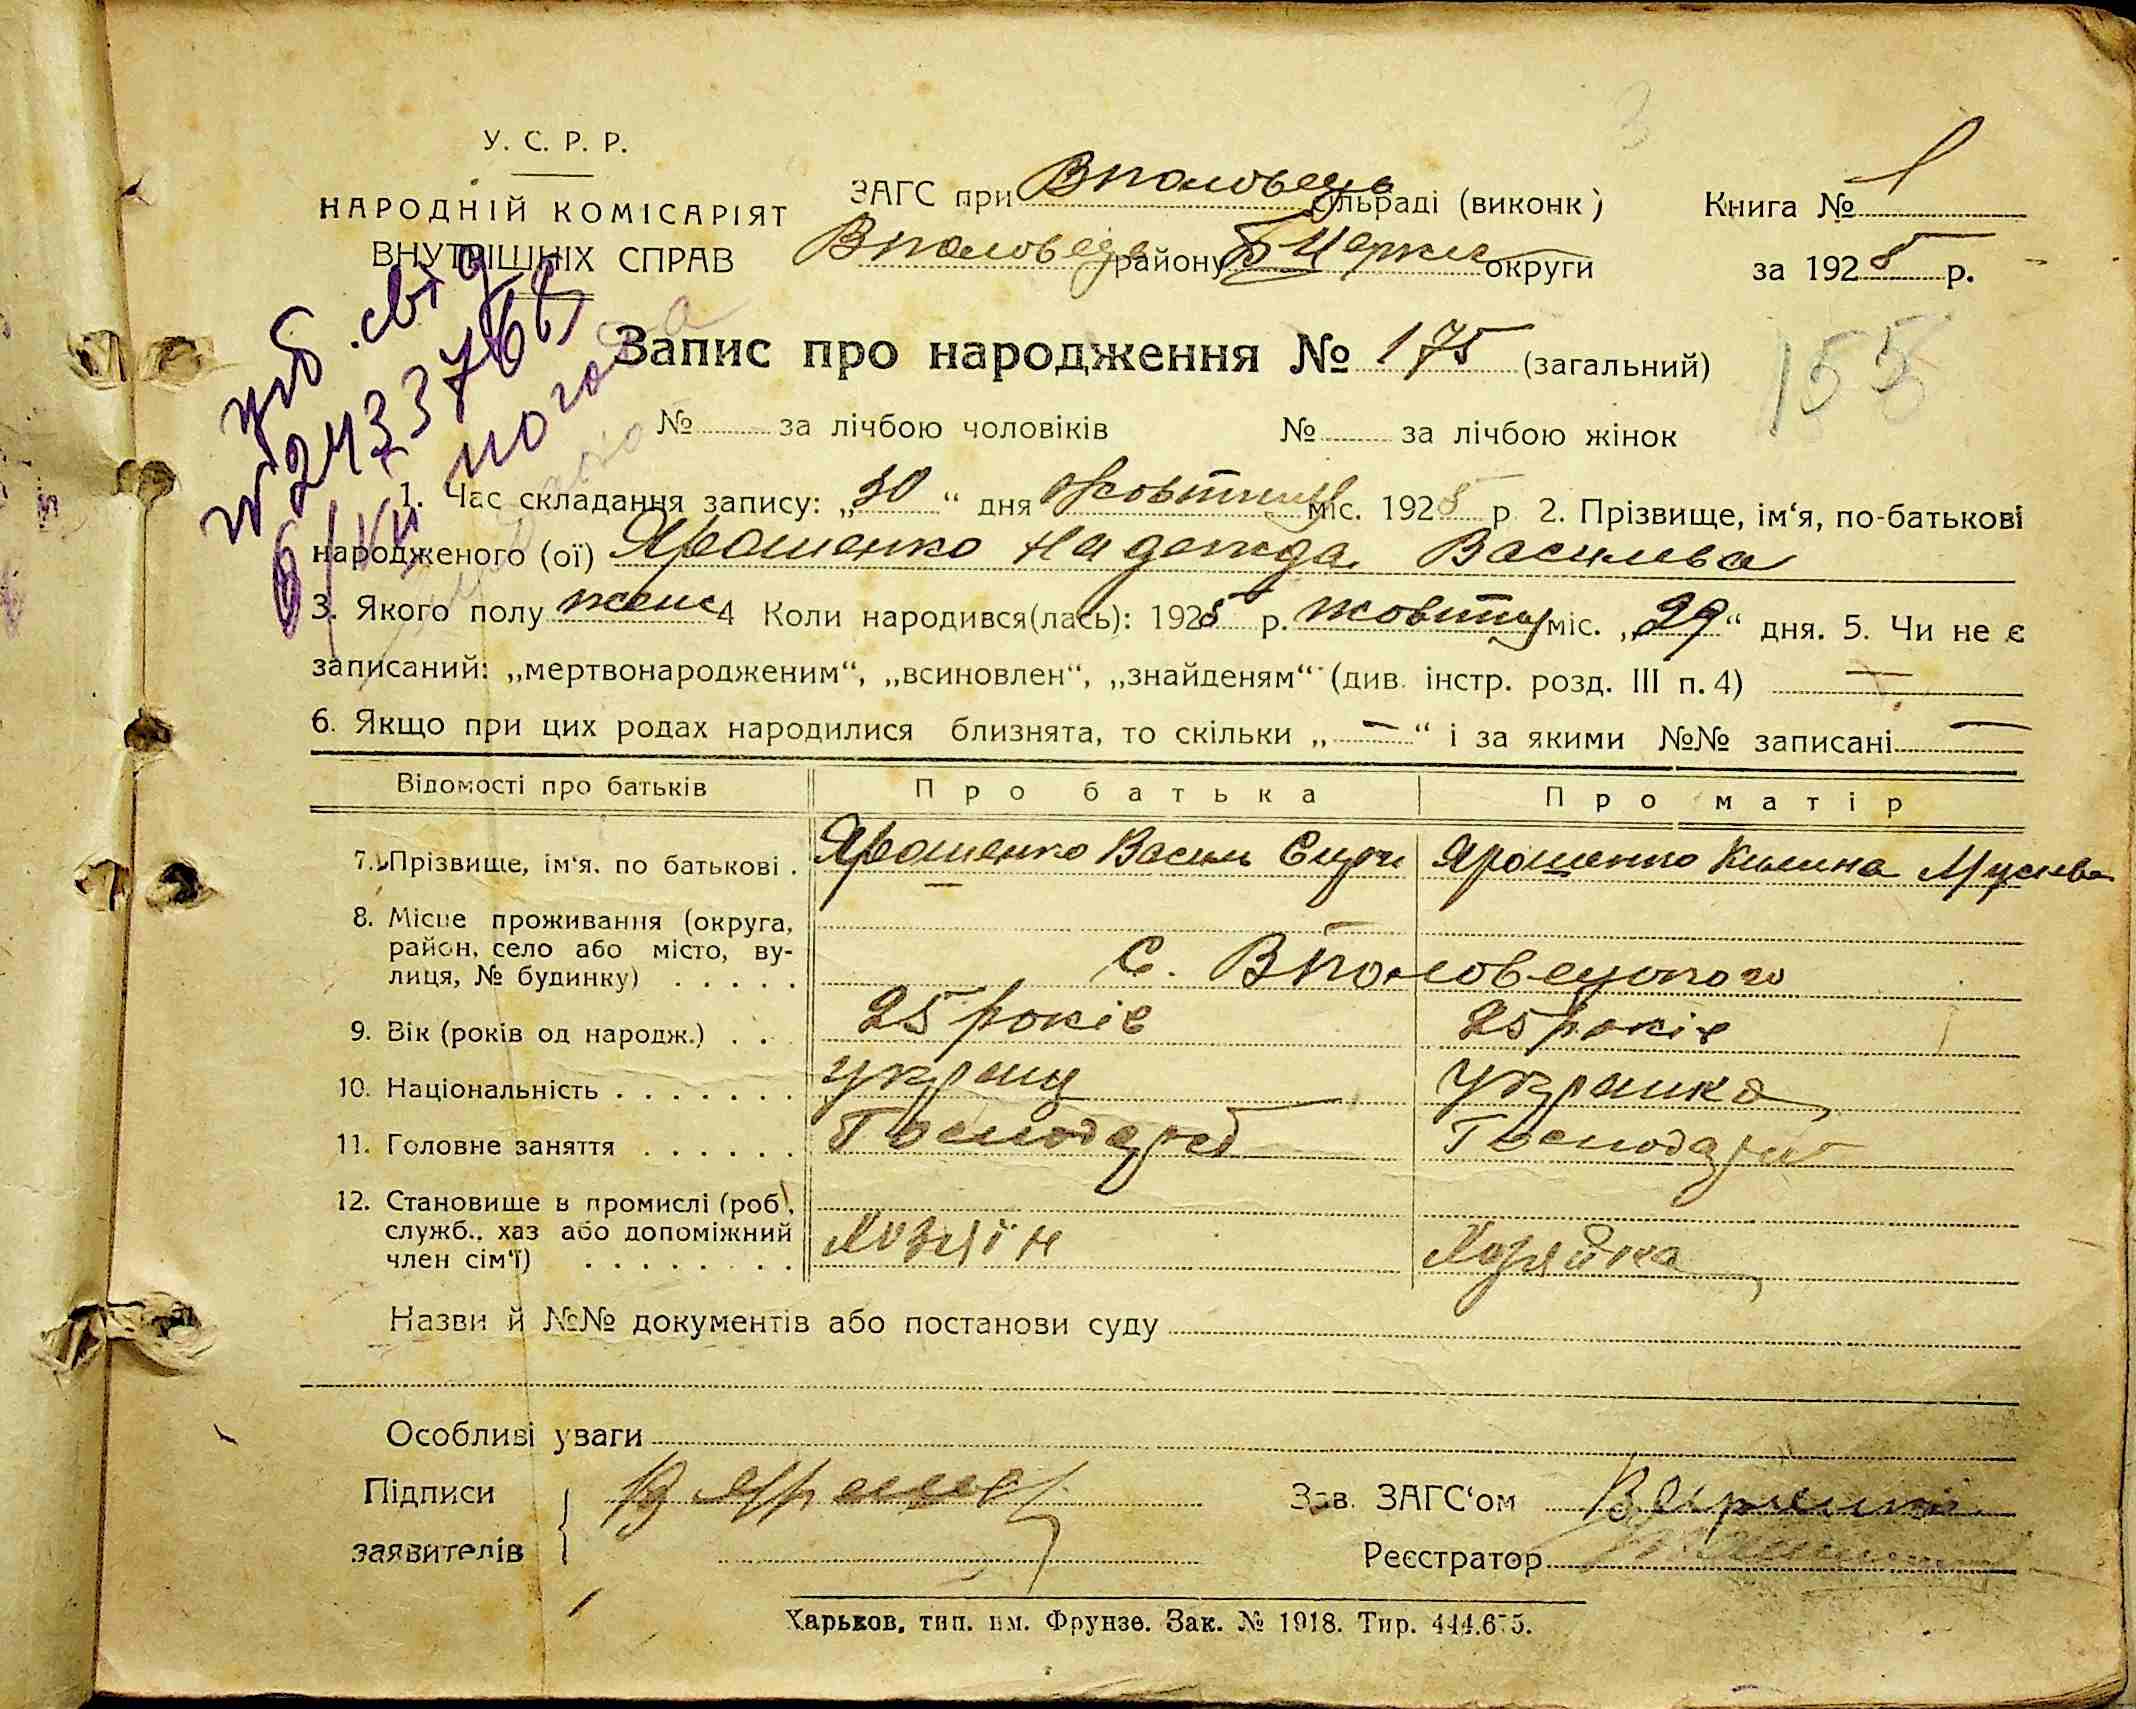 У. С. Р. Р.
НАРОДНІЙ КОМІСАРІЯТ
ВНУТРІШНІХ СПРАВ
ЗАГС при Вполовець сільраді (виконк)
Вполовец району БЦеркв округи
Книга № 1
за 1925 р.
Запис про народження № 175 (загальний)
155
№ за лічбою чоловіків № за лічбою жінок
№ 2433768
1. Час складання запису: „30“ дня Жовтня міс. 1925 р. 2. Прізвище, ім‘я, по-батькові
народженого (ої) Ярошенко Надежда Василева
3. Якого полу женс 4 Коли народився(лась): 1925 р. жовтня міс. „29“ дня. 5. Чи не є
записаний: „мертвонародженим“, „всиновлен“, „знайденям“ (див. інстр. розд. III п. 4) —
6. Якщо при цих родах народилися близнята, то скільки „—“ і за якими №№ записані —
Відомості про батьків Про батька Про матір
7. Прізвище, ім‘я. по батькові . Ярошенко Василь Ярошенко Килина Мусіева
8. Місце проживання (округа,
район, село або місто, ву-
лиця, № будинку) . . . . . С. Вполовецького
9. Вік (років од народж.) . . 25 років 25 років
10. Національність . . . . . . . Украиц Украинка
11. Головне заняття . . . . . . Господарст Господарст
12. Становище в промислі (роб.,
служб., хаз або допоміжний
член сім‘ї) . . . . . . . . Хозяїн Хозяйка
Назви й №№ документів або постанови суду
Особливі уваги
Підписи
заявителів
Зав. ЗАГС‘ом
Реєстратор
Харьков, тип. им. Фрунзе. Зак. № 1918. Тир. 444.675.